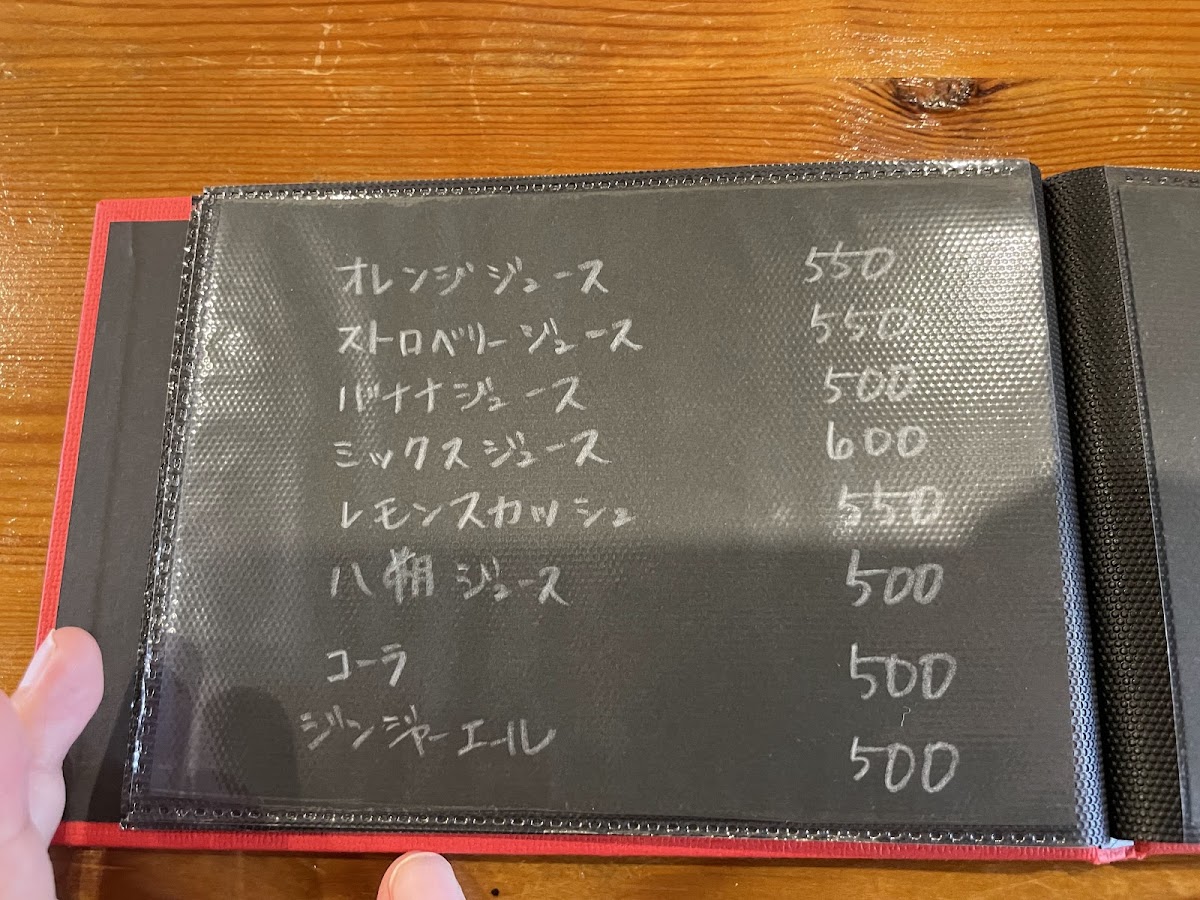 オレンジジュース 550
ストロベリージュース 550
バナナジュース 500
ミックスジュース 600
レモンスカッシュ 550
八朔ジュース 500
コーラ 500
ジンジャーエール 500